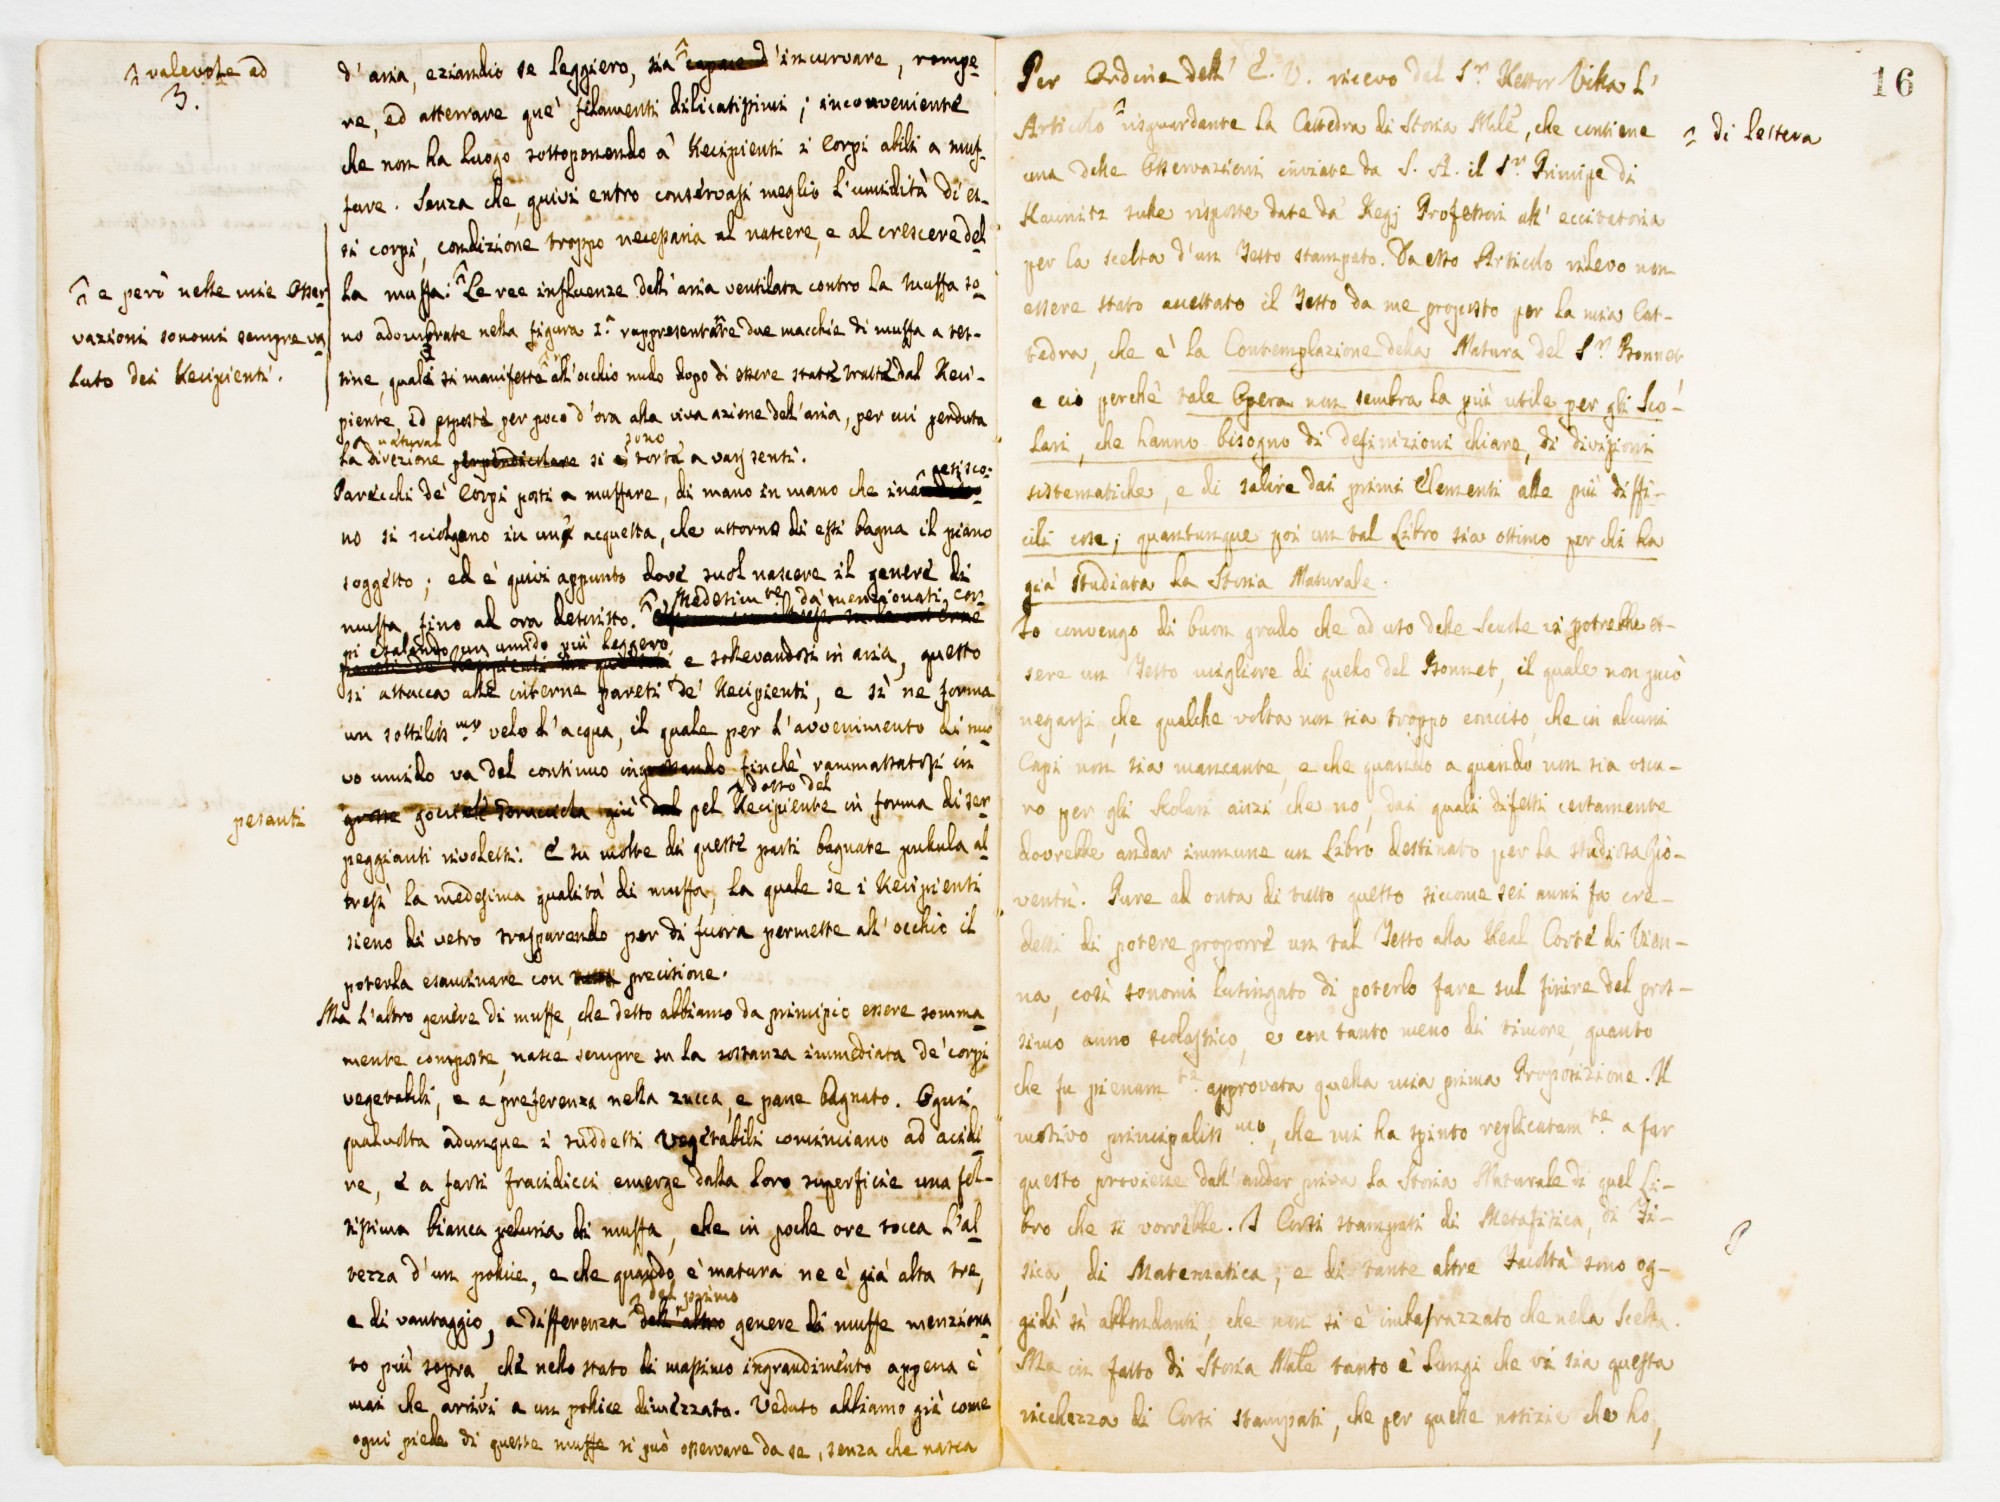 ^ valevole ad
3.
^ e però nelle mie Osser
vazioni sonomi sempre va
luto dei Recipienti.
pesanti
d'aria, eziandio se leggiero, sia ^ capace d'incurvare, rompe-
re, ed atterrare que' filamenti dilicatissimi; inconveniente
che non ha luogo sottoponendo a' Recipienti i Corpi abili a muf-
fare. Senza che, quivi entro conservasi meglio l'umidità di es-
si corpi, condizione troppo necessaria al nascere, e al crescere del
la muffa. ^ Le ree influenze dell'aria ventilata contro la muffa so
no adombrate nella figura 2.ª rappresentante due macchie di muffa a tet-
tine, quali si manifestan all'occhio nudo dopo di essere state tratte dal Reci-
piente, ed esposte per poco d'ora alla viva azione dell'aria, per cui perduta
naturale sono
la direzione perpendicolare si è torta a varj sensi.
Parecchi de' Corpi posti a muffare, di mano in mano che ina
no si sciolgono in un' acquetta, che attorno di essi bagna il piano
soggetto; ed è quivi appunto dove suol nascere il genere di
Medesim.te da' menzionati cor
muffa fino ad ora descritto. ^
pi esalando un umido più leggero
e sollevandosi in aria, questo
si attacca alle interne pareti de' Recipienti, e sì ne forma
un sottiliss.mo velo d'acqua, il quale per l'avvenimento di nuo
vo umido va del continuo ingrossando finchè rammassatosi in
dosso del
grosse gocciole sdrucciola giù dal pel Recipiente in forma di ser
peggianti rivoletti. E su molte di queste parti bagnate pullula al
tresì la medesima qualità di muffa, la quale se i Recipienti
sieno di vetro trasparendo per di fuora permette all'occhio il
poterla esaminare con tutta precisione.
Ma l'altro genere di muffe, che detto abbiamo da principio essere somma
mente composte, nasce sempre su la sostanza immediata de' corpi
vegetabili, e a preferenza nella zucca, e pane bagnato. Ogni
qualvolta adunque i suddetti vegetabili cominciano ad acidi
re, e a farsi fracidicci emerge dalla loro superficie una fol-
tissima bianca peluria di muffa, che in poche ore tocca l'al
tezza d'un pollice, e che quando è matura ne è già alta tre,
del primo
e di vantaggio, a differenza dell'altro genere di muffe menziona
to più sopra, che nello stato di massimo ingrandimento appena è
mai che arrivi a un pollice dimezzato. Veduto abbiamo già come
ogni piede di queste muffe si può osservare da se, senza che nasca
16
Per Ordine dell' E. V. ricevo del S.r Rettor Villa l'
Articolo ^ risguardante la Cattedra di Storia Nāle, che contiene
^ di lettera
una delle Osservazioni inviate da S. A. il S.r Principe di
Kaunitz sulle risposte date da' Regj Professori all' eccitatoria
per la scelta d'un Testo stampato. Da esso Articolo rilevo non
essere stato accettato il Testo da me proposto per la mia Cat-
tedra, che è la Contemplazione della Natura del S.r Bonnet
e ciò perchè tale Opera non sembra la più utile per gli Sco-
lari, che hanno bisogno di definizioni chiare, di divisioni
sistematiche, e di salire dai primi Elementi alle più diffi-
cili cose; quantunque poi un tal Libro sia ottimo per chi ha
già studiata la Storia Naturale.
Io convengo di buon grado che ad uso delle Scuole vi potrebbe es-
sere un Testo migliore di quello del Bonnet, il quale non può
negarsi, che qualche volta non sia troppo conciso, che in alcuni
Capi non sia mancante, e che quando a quando non sia oscu-
ro per gli Scolari anzi che no, dai quali difetti certamente
dovrebbe andar immune un Libro destinato per la studiosa Gio-
ventù. Pure ad onta di tutto questo siccome sei anni fa cre-
detti di potere proporre un tal Testo alla Real Corte di Vien-
na, così sonomi lusingato di poterlo fare sul finire del pros-
simo anno scolastico, e con tanto meno di timore, quanto
che fu pienam.te approvata quella mia prima Proposizione. Il
motivo principaliss.mo, che mi ha spinto replicatam.te a far
questo proviene dall' andar priva la Storia Naturale di quel Li-
bro che si vorrebbe. I Corsi stampati di Metafisica, di Fi-
sica, di Matematica, e di tante altre Facoltà sono og-
gidì sì abbondanti, che non si è imbarazzato che nella scelta.
Ma in fatto di Storia Nāle tanto è lungi che vi sia questa
ricchezza di Corsi stampati, che per quelle notizie che ho,